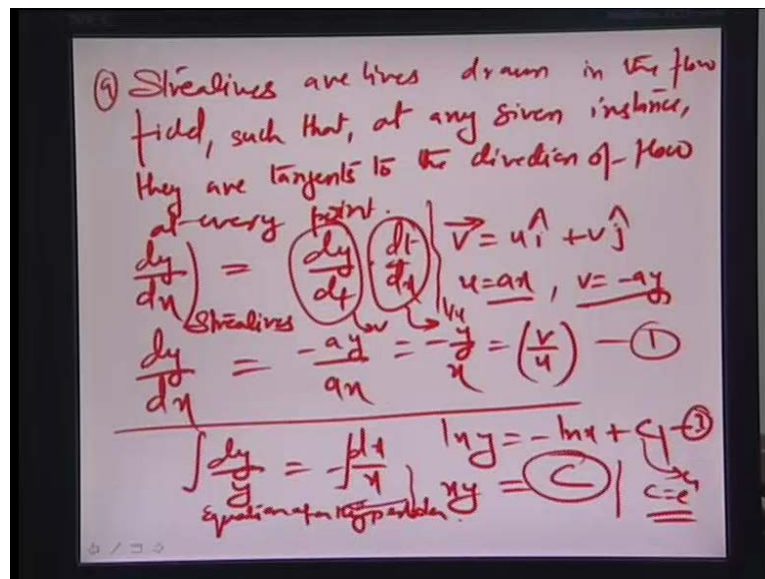 (a) Strealines are lines drawn in the flow
field, such that, at any given instance,
they are tangents to the direction of flow
at every point.
dy/dx) Strealines = dy/dt · dt/dx
→ v → 1/u
V = u î + v ĵ
u = ax, v = -ay
dy/dx = -ay/ax = -y/x = (v/u) — ①
∫ dy/y = -∫ dx/x
ln y = -ln x + C₁ — ②
xy = C
Equation of a Hyperbola.